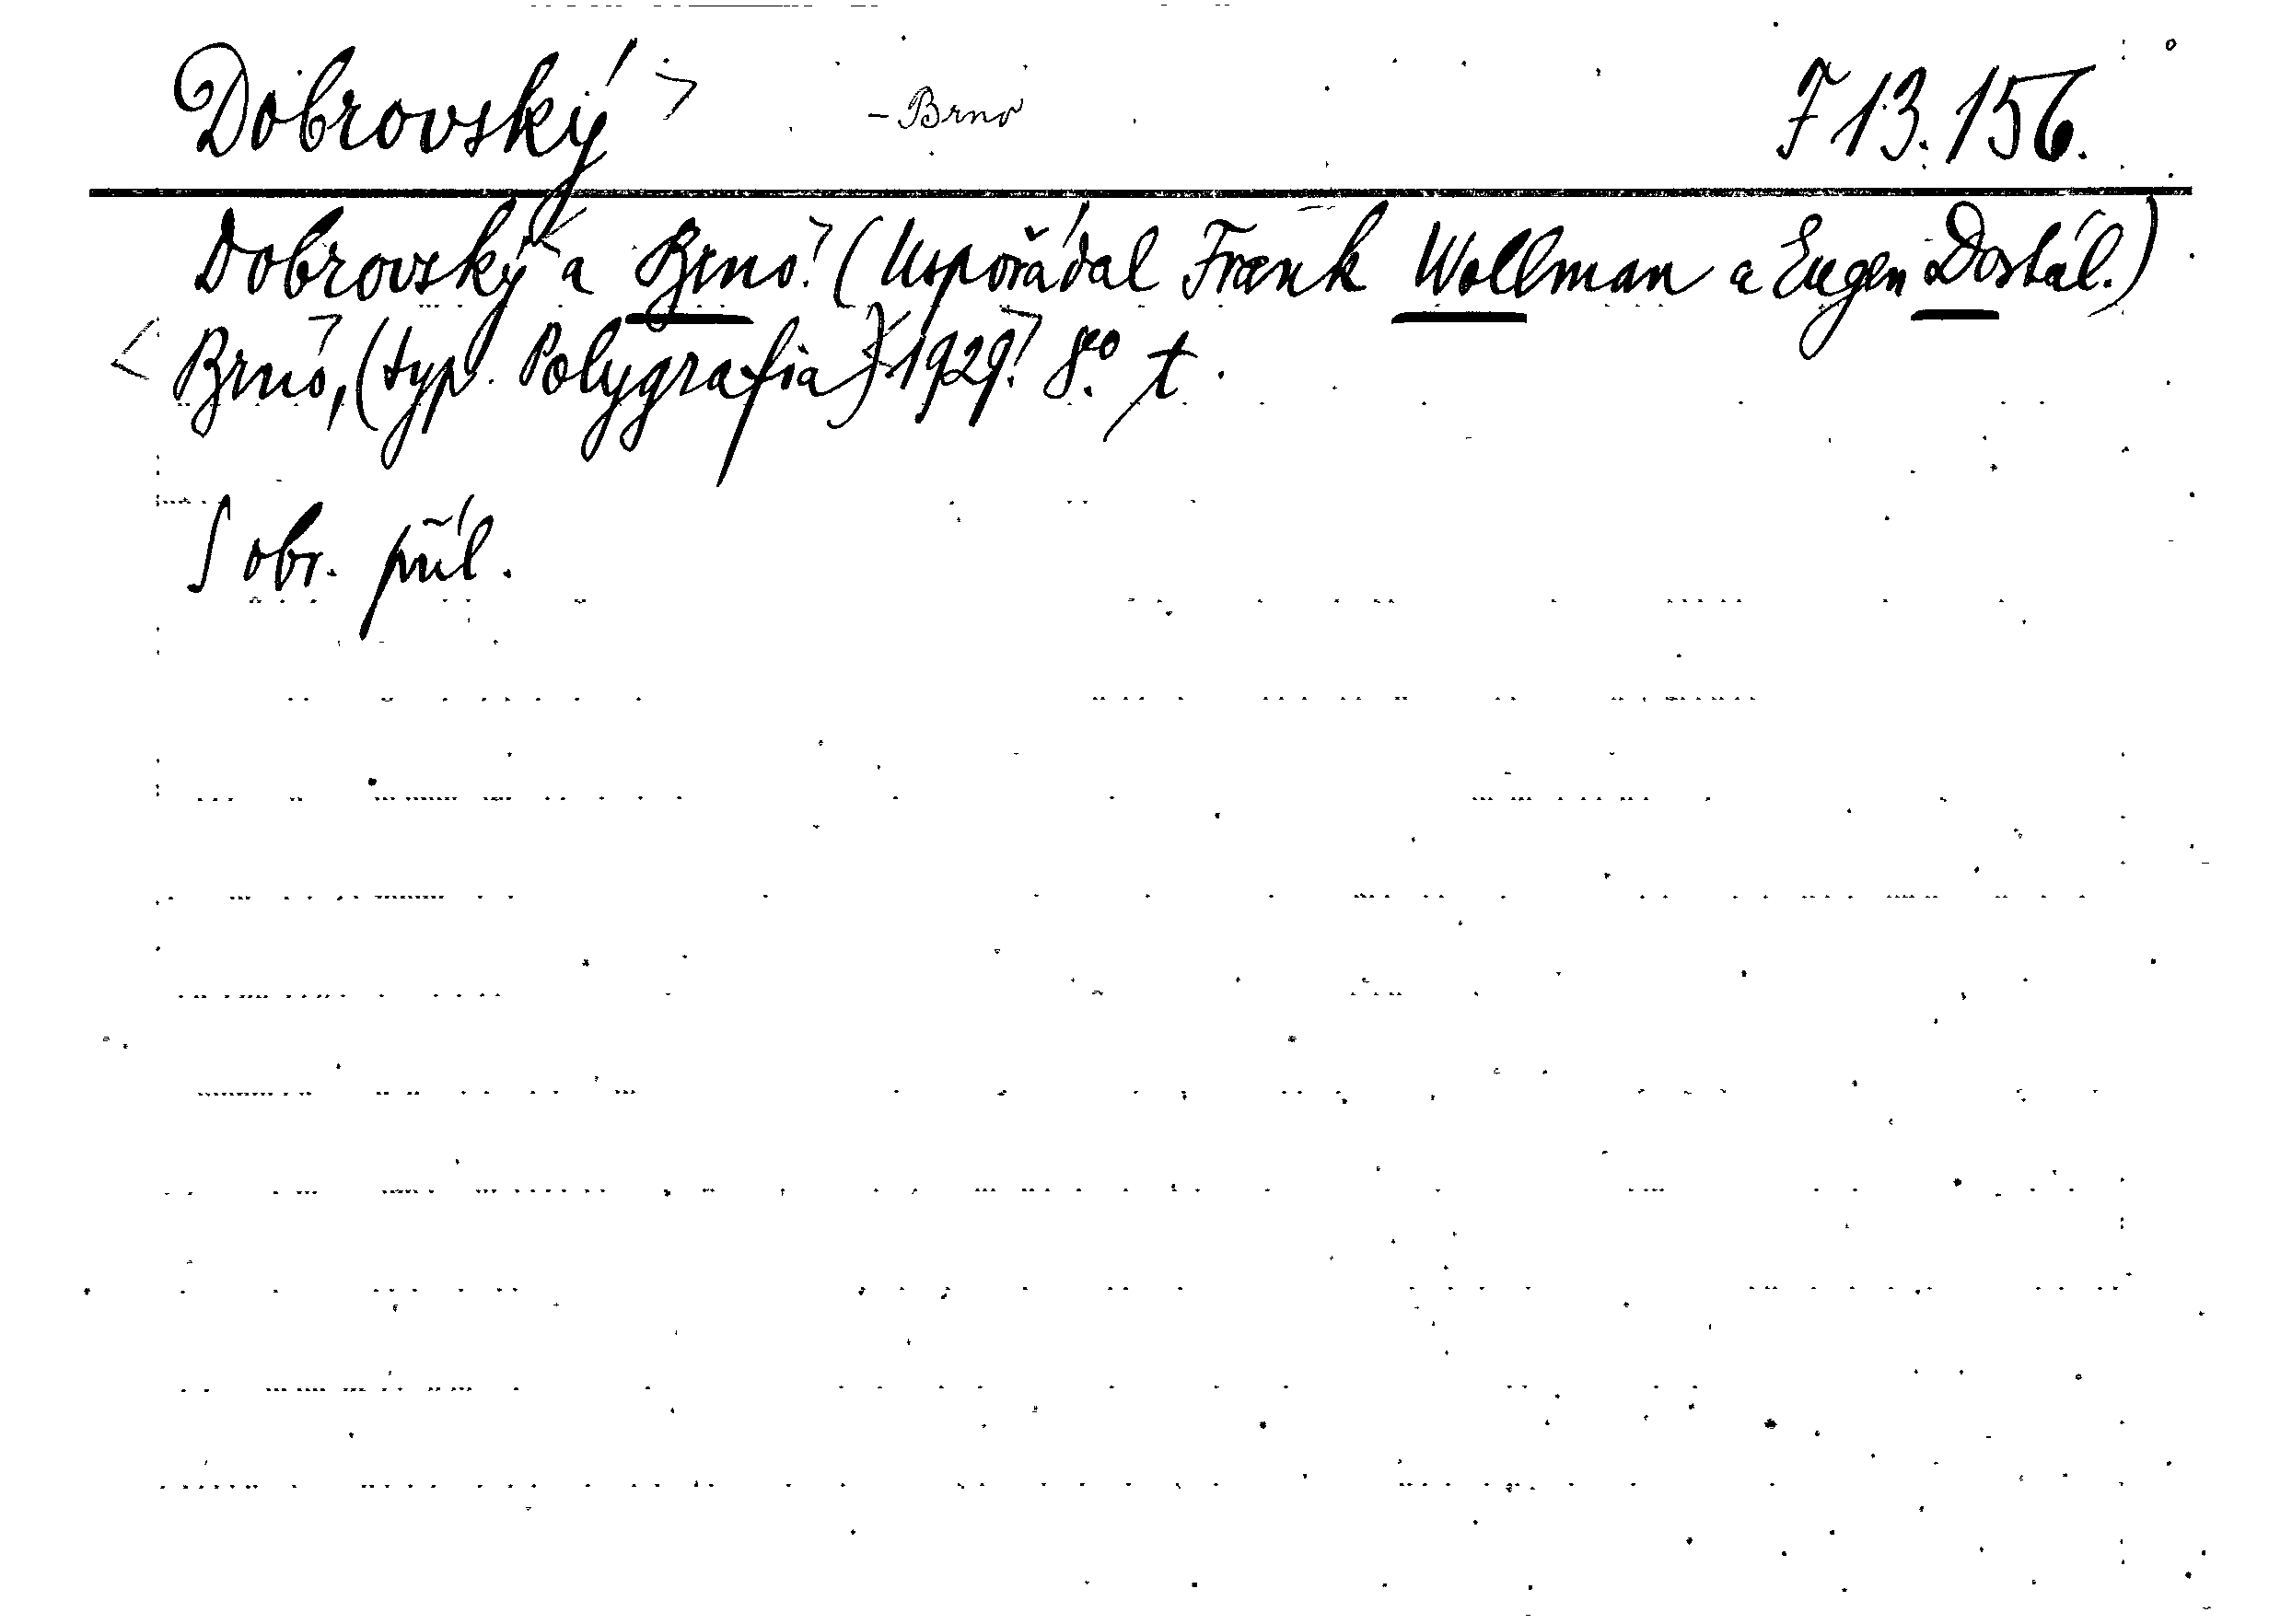 Dobrovský - Brno F 13.156.
Dobrovský a Brno. (Uspořádal Frank Wollman a Eugen Dostál.)
Brno, (typ. Polygrafia) 1929. 8° t.
S obr. příl.